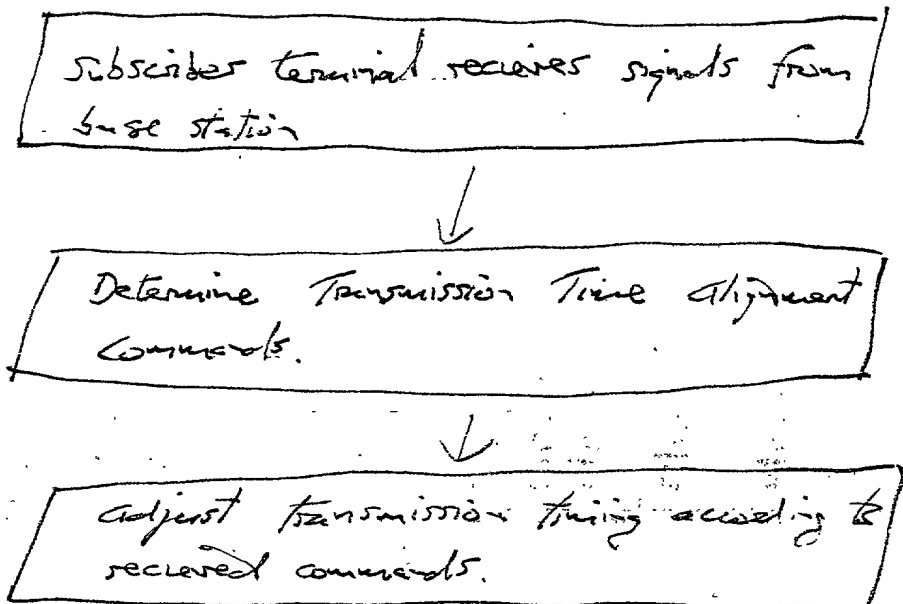 Subscriber terminal recieves signals from
base station
Determine Transmission Time alignment
Commands.
adjust transmission timing accoding to
recieved commands.